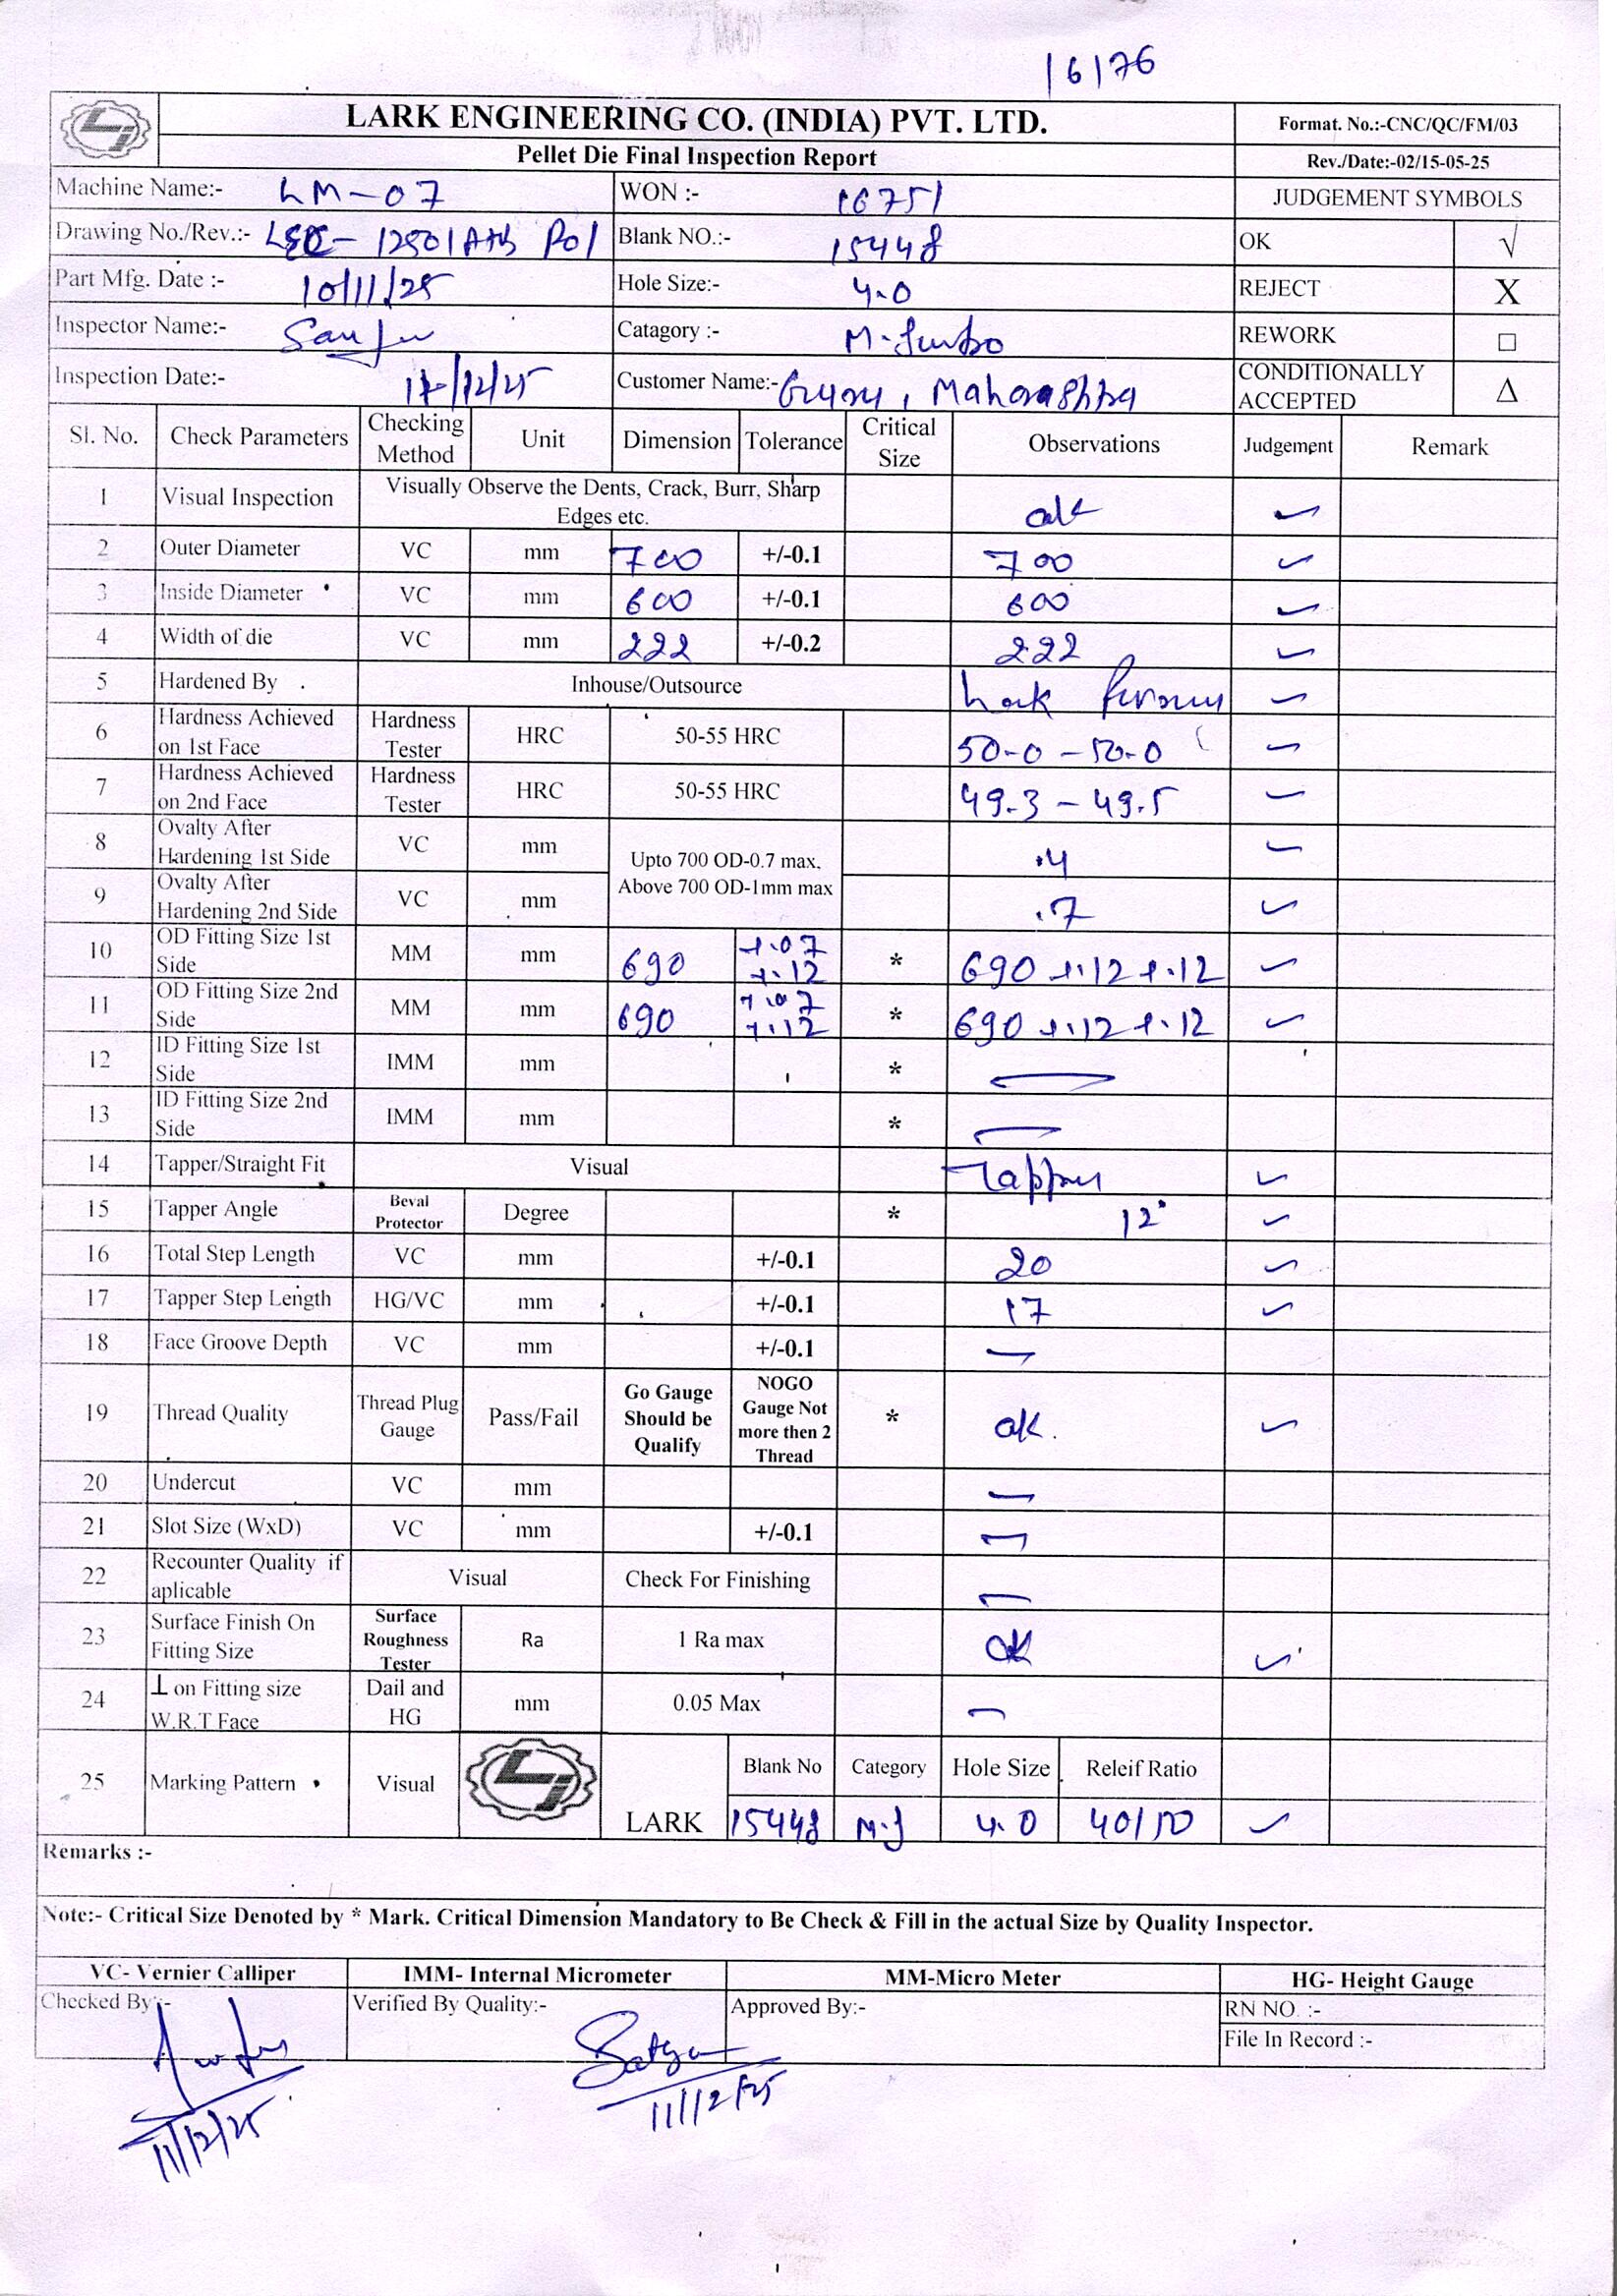 16176
LARK ENGINEERING CO. (INDIA) PVT. LTD.
Format. No.:-CNC/QC/FM/03
Pellet Die Final Inspection Report
Rev./Date:-02/15-05-25
Machine Name:- LM-07 WON :- 16751 JUDGEMENT SYMBOLS
Drawing No./Rev.:- 12501 Blank NO.:- 15448 OK √
Part Mfg. Date :- 10/11/25 Hole Size:- 4.0 REJECT X
Inspector Name:- Catagory :- M. REWORK □
Inspection Date:- Customer Name:- , Maharashtra CONDITIONALLY ACCEPTED Δ
Sl. No. Check Parameters Checking Method Unit Dimension Tolerance Critical Size Observations Judgement Remark
1 Visual Inspection Visually Observe the Dents, Crack, Burr, Sharp Edges etc. ok ✓
2 Outer Diameter VC mm 700 +/-0.1 700 ✓
3 Inside Diameter VC mm 600 +/-0.1 600 ✓
4 Width of die VC mm 222 +/-0.2 222 ✓
5 Hardened By Inhouse/Outsource Lark ✓
6 Hardness Achieved on 1st Face Hardness Tester HRC 50-55 HRC 50.0 - 50.0 ✓
7 Hardness Achieved on 2nd Face Hardness Tester HRC 50-55 HRC 49.3 - 49.5 ✓
8 Ovalty After Hardening 1st Side VC mm Upto 700 OD-0.7 max. Above 700 OD-1mm max .4 ✓
9 Ovalty After Hardening 2nd Side VC mm .7 ✓
10 OD Fitting Size 1st Side MM mm 690 +.07 +.12 * 690 +.12 +.12 ✓
11 OD Fitting Size 2nd Side MM mm 690 +.07 +.12 * 690 +.12 +.12 ✓
12 ID Fitting Size 1st Side IMM mm * —
13 ID Fitting Size 2nd Side IMM mm * —
14 Tapper/Straight Fit Visual Tapper ✓
15 Tapper Angle Beval Protector Degree * 12° ✓
16 Total Step Length VC mm +/-0.1 20 ✓
17 Tapper Step Length HG/VC mm +/-0.1 17 ✓
18 Face Groove Depth VC mm +/-0.1 —
19 Thread Quality Thread Plug Gauge Pass/Fail Go Gauge Should be Qualify NOGO Gauge Not more then 2 Thread * ok. ✓
20 Undercut VC mm —
21 Slot Size (WxD) VC mm +/-0.1 —
22 Recounter Quality if aplicable Visual Check For Finishing —
23 Surface Finish On Fitting Size Surface Roughness Tester Ra 1 Ra max ok ✓
24 ⊥ on Fitting size W.R.T Face Dail and HG mm 0.05 Max —
25 Marking Pattern Visual LARK Blank No Category Hole Size Releif Ratio
15448 M.J 4.0 40/10 ✓
Remarks :-
Note:- Critical Size Denoted by * Mark. Critical Dimension Mandatory to Be Check & Fill in the actual Size by Quality Inspector.
VC- Vernier Calliper IMM- Internal Micrometer MM-Micro Meter HG- Height Gauge
Checked By:- Verified By Quality:- Approved By:- RN NO. :-
File In Record :-
11/12/25 11/12/25